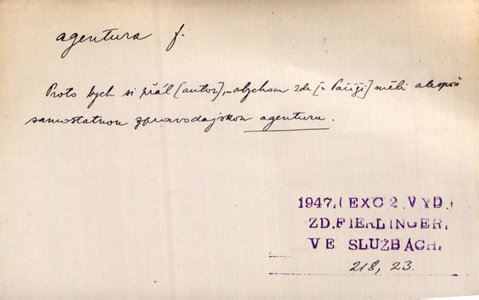 agentura f.
Proto bych si přál [autor], abychom zde [v Paříži] měli alespoň
samostatnou zpravodajskou agenturu.
1947, (EXC 2. VYD.)
ZD. FIERLINGER,
VE SLUŽBÁCH.
218, 23.